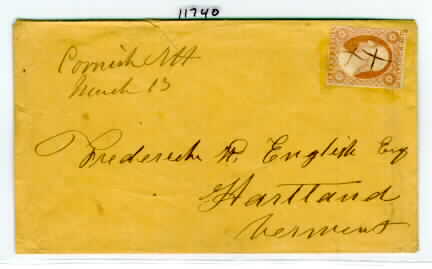 11740
Cornish NH
March 13
Frederick R. English Esq
Hartland
Vermont